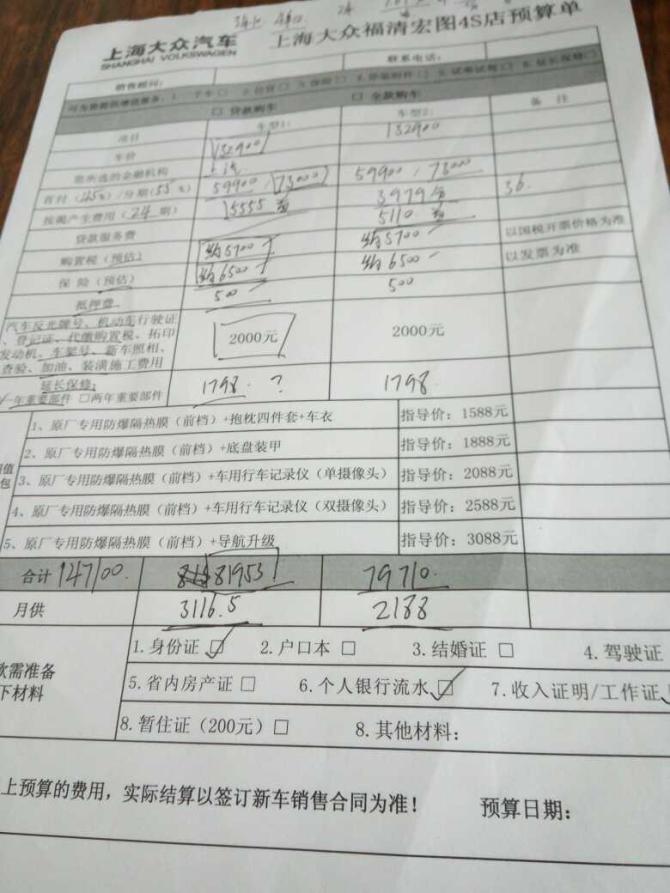 上海大众汽车 上海大众福清宏图4S店预算单
SHANGHAI VOLKSWAGEN
销售顾问: 联系电话:
□ 贷款购车 □ 全款购车
项目 车型1: 车型2: 备 注
车价 132900 132900
您所选的金融机构
首付( %)/分期(55%) 59900/73000 59900/73000
按揭产生费用(24期) 5555 3979 36
贷款服务费 5110
购置税(预估) 5700 5700 以国税开票价格为准
保 险(预估) 6500 6500 以发票为准
抵押费 500 500
汽车反光牌号、机动车行驶证
、登记证、代缴购置税、拓印
发动机、车架号、新车照相、
查验、加油、装潢施工费用 2000元 2000元
延长保修:
一年重要部件 □两年重要部件 1798 ? 1798
1、原厂专用防爆隔热膜(前档)+抱枕四件套+车衣 指导价: 1588元
2、原厂专用防爆隔热膜(前档)+底盘装甲 指导价: 1888元
3、原厂专用防爆隔热膜(前档)+车用行车记录仪(单摄像头) 指导价: 2088元
4、原厂专用防爆隔热膜(前档)+车用行车记录仪(双摄像头) 指导价: 2588元
5、原厂专用防爆隔热膜(前档)+导航升级 指导价: 3088元
合计 147100. 81953 79710.
月供 3116.5 2188
1.身份证 ☑ 2.户口本 □ 3.结婚证 □ 4.驾驶证
款需准备
下材料
5.省内房产证 □ 6.个人银行流水 ☑ 7.收入证明/工作证
8.暂住证(200元) □ 8.其他材料:
上预算的费用，实际结算以签订新车销售合同为准! 预算日期: